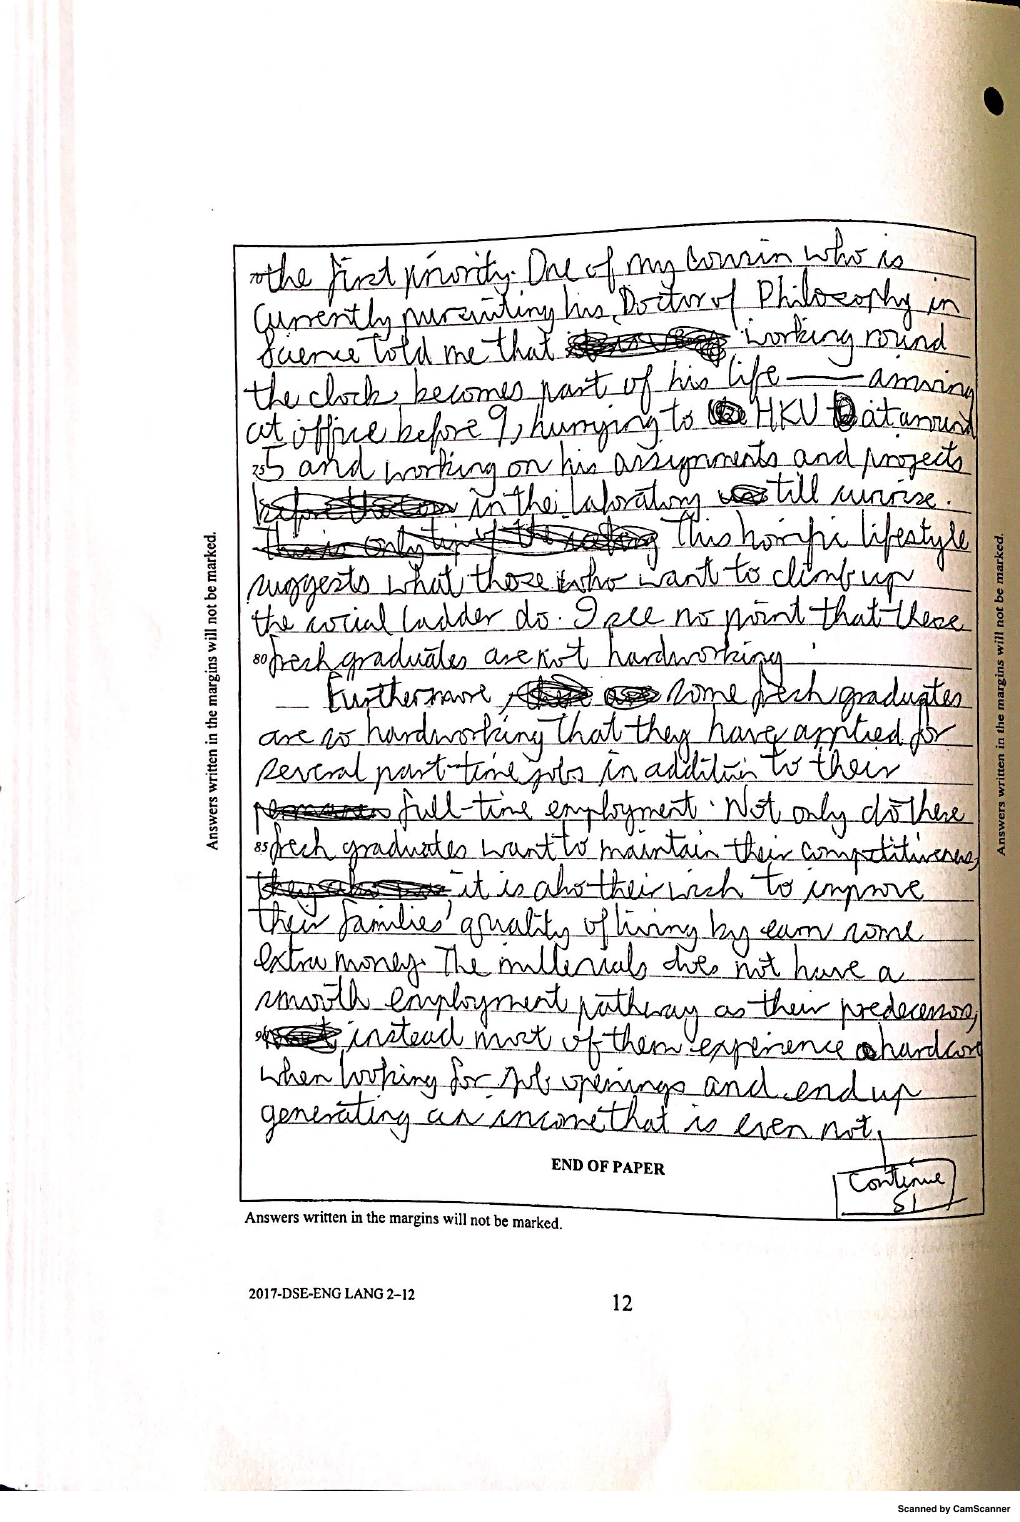 70 the first priority. One of my cousin who is
currently pursuiting his Doctor of Philosophy in
Science told me that working round
the clock becomes part of his life — arriving
at office before 9, hurrying to HKU at around
75 5 and working on his assignments and projects
in the laboratory till sunrise.
This horrific lifestyle
suggests what those who want to climb up
the social ladder do. I see no point that these
80 fresh graduates are not hardworking.
Furthermore, some fresh graduates
are so hardworking that they have applied for
several part-time jobs in addition to their
full-time employment. Not only do these
85 fresh graduates want to maintain their competitiveness,
it is also their wish to improve
their families' quality of living by earn some
extra money. The millenials does not have a
smooth employment pathway as their predecessors,
90 instead most of them experience hardcore
when looking for job openings and end up
generating an income that is even not
END OF PAPER
Continue
S1
Answers written in the margins will not be marked.
Answers written in the margins will not be marked.
Answers written in the margins will not be marked.
2017-DSE-ENG LANG 2–12
12
Scanned by CamScanner